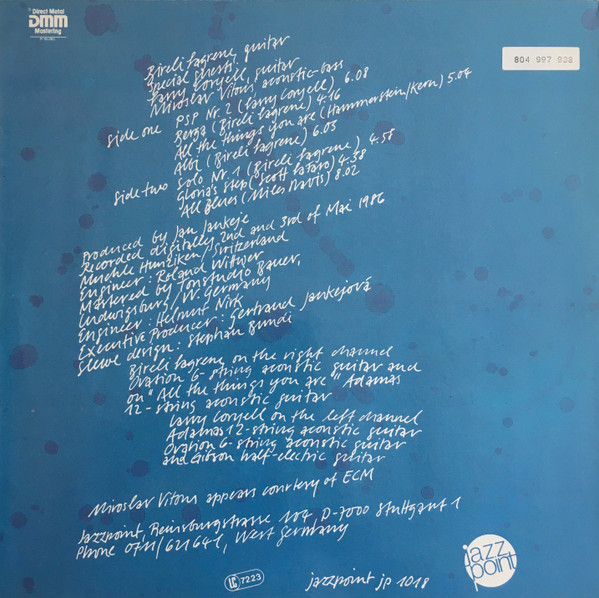 Direct Metal
DMM
Mastering
804 997 908
Bireli Lagrene, guitar
Special guests:
Larry Coryell, guitar
Miroslav Vitous, acoustic-bass
side one PSP Nr. 2 (Larry Coryell) 6.08
Berga (Bireli Lagrene) 4.16
All the things you are (Hammerstein/Kern) 5.04
Albi (Bireli Lagrene) 6.03
side two Solo Nr. 1 (Bireli Lagrene) 4.58
Gloria's step (Scott Lafaro) 4.38
All Blues (Miles Davis) 8.02
Produced by Jan Jankeje
Recorded digitally, 2nd and 3rd of Mai 1986
Muehle Hunziken/Switzerland
Engineer: Roland Wittwer
Mastered by Tonstudio Bauer,
Ludwigsburg/W. Germany
Engineer: Helmut Nirk
Executive Producer: Gertrand Jankejová
Sleeve design: Stephan Bundi
Bireli Lagrene on the right channel
Ovation 6-string acoustic guitar and
on "All the things you are" Adamas
12-string acoustic guitar
Larry Coryell on the left channel
Adamas 12-string acoustic guitar
Ovation 6-string acoustic guitar
and Gibson half-electric guitar
Miroslav Vitous appears courtesy of ECM
Jazzpoint, Reinsburgstrasse 104, D-7000 Stuttgart 1
Phone 0711/62164-1, West Germany
LC 7223
jazzpoint jp 1018
jazz
point